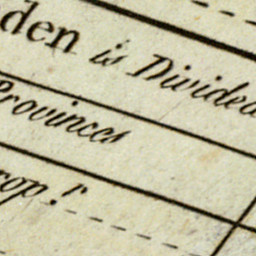 den is Divided
Provinces
rop.r